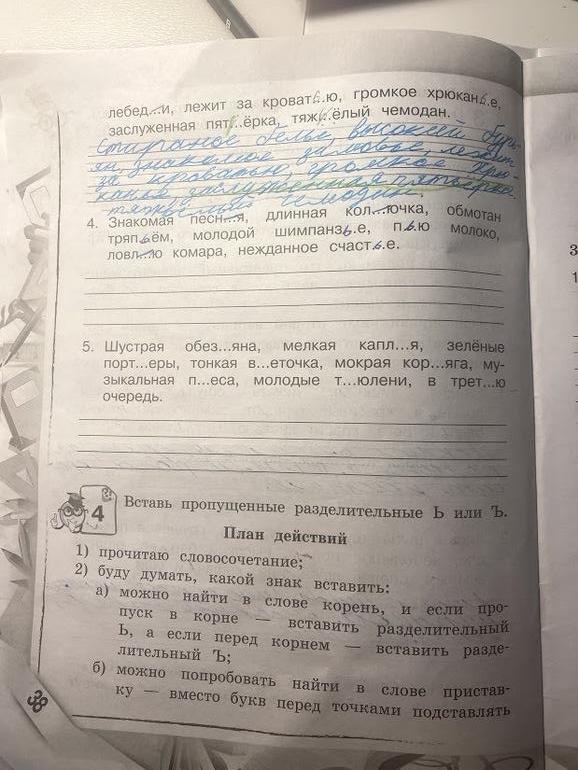 лебед...и, лежит за кроват...ь.ю, громкое хрюкань.е,
заслуженная пят...ёрка, тяж...ёлый чемодан.
Стираное белье высокий бурь-
ян, знакомое зимовье, лежит
за кроватью, громкое хрю-
канье заслуженная пятьёрка.
тяжелый чемодан.
4. Знакомая песн...я, длинная кол...ючка, обмотан
тряпь.ём, молодой шимпанзь.е, пь.ю молоко,
ловл...ю комара, нежданное счасть.е.
5. Шустрая обез...яна, мелкая капл...я, зелёные
порт...еры, тонкая в...еточка, мокрая кор...яга, му-
зыкальная п...еса, молодые т...юлени, в трет...ю
очередь.
4 Вставь пропущенные разделительные Ь или Ъ.
План действий
1) прочитаю словосочетание;
2) буду думать, какой знак вставить:
а) можно найти в слове корень, и если про-
пуск в корне — вставить разделительный
Ь, а если перед корнем — вставить разде-
лительный Ъ;
б) можно попробовать найти в слове пристав-
ку — вместо букв перед точками подставлять
38